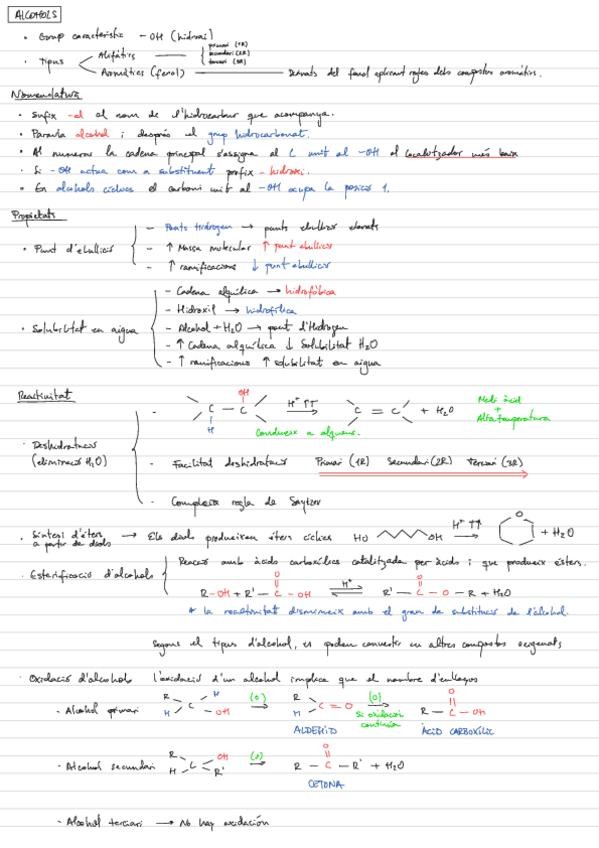 ALCOHOLS
• Grup característic -OH (hidroxi)
• Tipus
Alifàtics
primari (1R)
secundari (2R)
terciari (3R)
Aromàtics (fenol) Derivats del fenol aplicant regles dels compostos aromàtics.
Nomenclatura
• Sufix -ol al nom de l'hidrocarbur que acompanya.
• Paraula alcohol i després el grup hidrocarbonat.
• Al numerar la cadena principal s'assigna al C unit al -OH el localitzador més baix
• Si -OH actua com a substituent prefix - hidroxi.
• En alcohols cíclics el carboni unit al -OH ocupa la posició 1.
Propietats
• Punt d'ebullició
- Ponts hidrogen → punts ebullició elevats
- ↑ Massa molecular ↑ punt ebullició
- ↑ ramificacions ↓ punt ebullició
• Solubilitat en aigua
- Cadena alquílica → hidrofòbica
- Hidroxil → hidrofílica
- Alcohol + H2O → pont d'Hidrogen
- ↑ Cadena alquílica ↓ Solubilitat H2O
- ↑ ramificacions ↑ solubilitat en aigua
Reactivitat
• Deshidratació
(eliminació H2O)
- C - C OH H H+ ↑T C = C + H2O
Condueix a alquens.
Medi àcid
+
Alta temperatura
- Facilitat deshidratació Primari (1R) Secundari (2R) Terciari (3R)
- Compleix regla de Saytzev
• Síntesi d'èters
a partir de diols → Els diols produeixen èters cíclics HO OH H+ ↑T O + H2O
• Esterificació d'alcohols
Reacció amb àcids carboxílics catalitzada per àcids i que produeix èsters.
R-OH + R' - C - OH O H+ R' - C - O - R + H2O O
* la reactivitat disminueix amb el grau de substitució de l'alcohol.
Segons el tipus d'alcohol, es poden convertir en altres compostos oxigenats
• Oxidació d'alcohols l'oxidació d'un alcohol implica que el nombre d'enllaços
- Alcohol primari R H H C OH (O) R H C = O (O) R - C - OH O
Si oxidació
continua
ALDEHID ÀCID CARBOXÍLIC
- Alcohol secundari R H C OH R' (O) R - C - R' + H2O O
CETONA
- Alcohol terciari → No hay oxidación